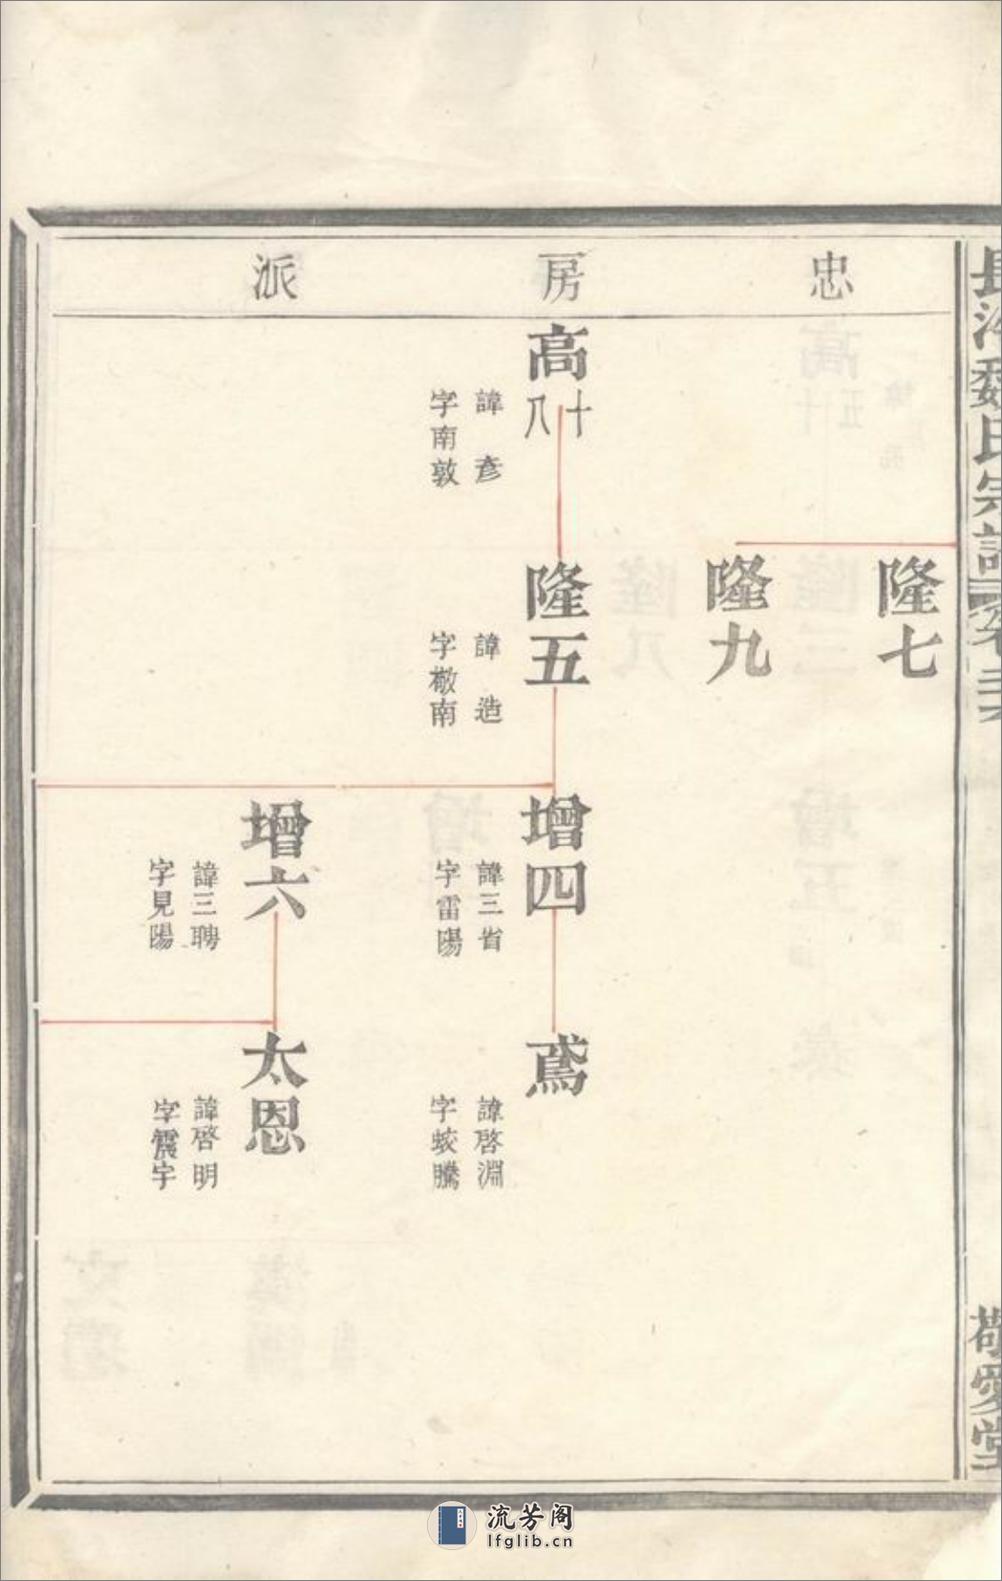 忠房派
隆七
隆九
高十八
諱彥
字南敦
隆五
諱造
字敬南
增四
諱三省
字雷陽
鳶
諱啓淵
字蛟騰
增六
諱三聘
字見陽
太恩
諱啓明
字震宇
魏氏宗譜
敬愛堂
流芳阁
lfglib.cn